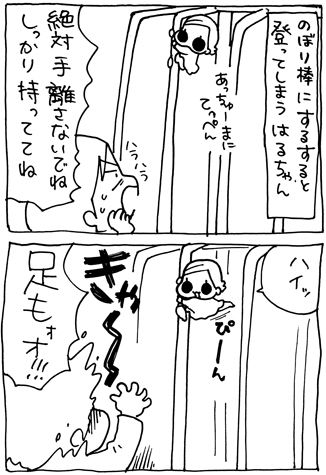 のぼり棒にするすると
登ってしまうはるちゃん
あっちゅーまに
てっぺん
ハラハラ
絶対手離さないでね
しっかり持っててね
ハイッ
ぴーん
きゃ〜
足もォオ!!!